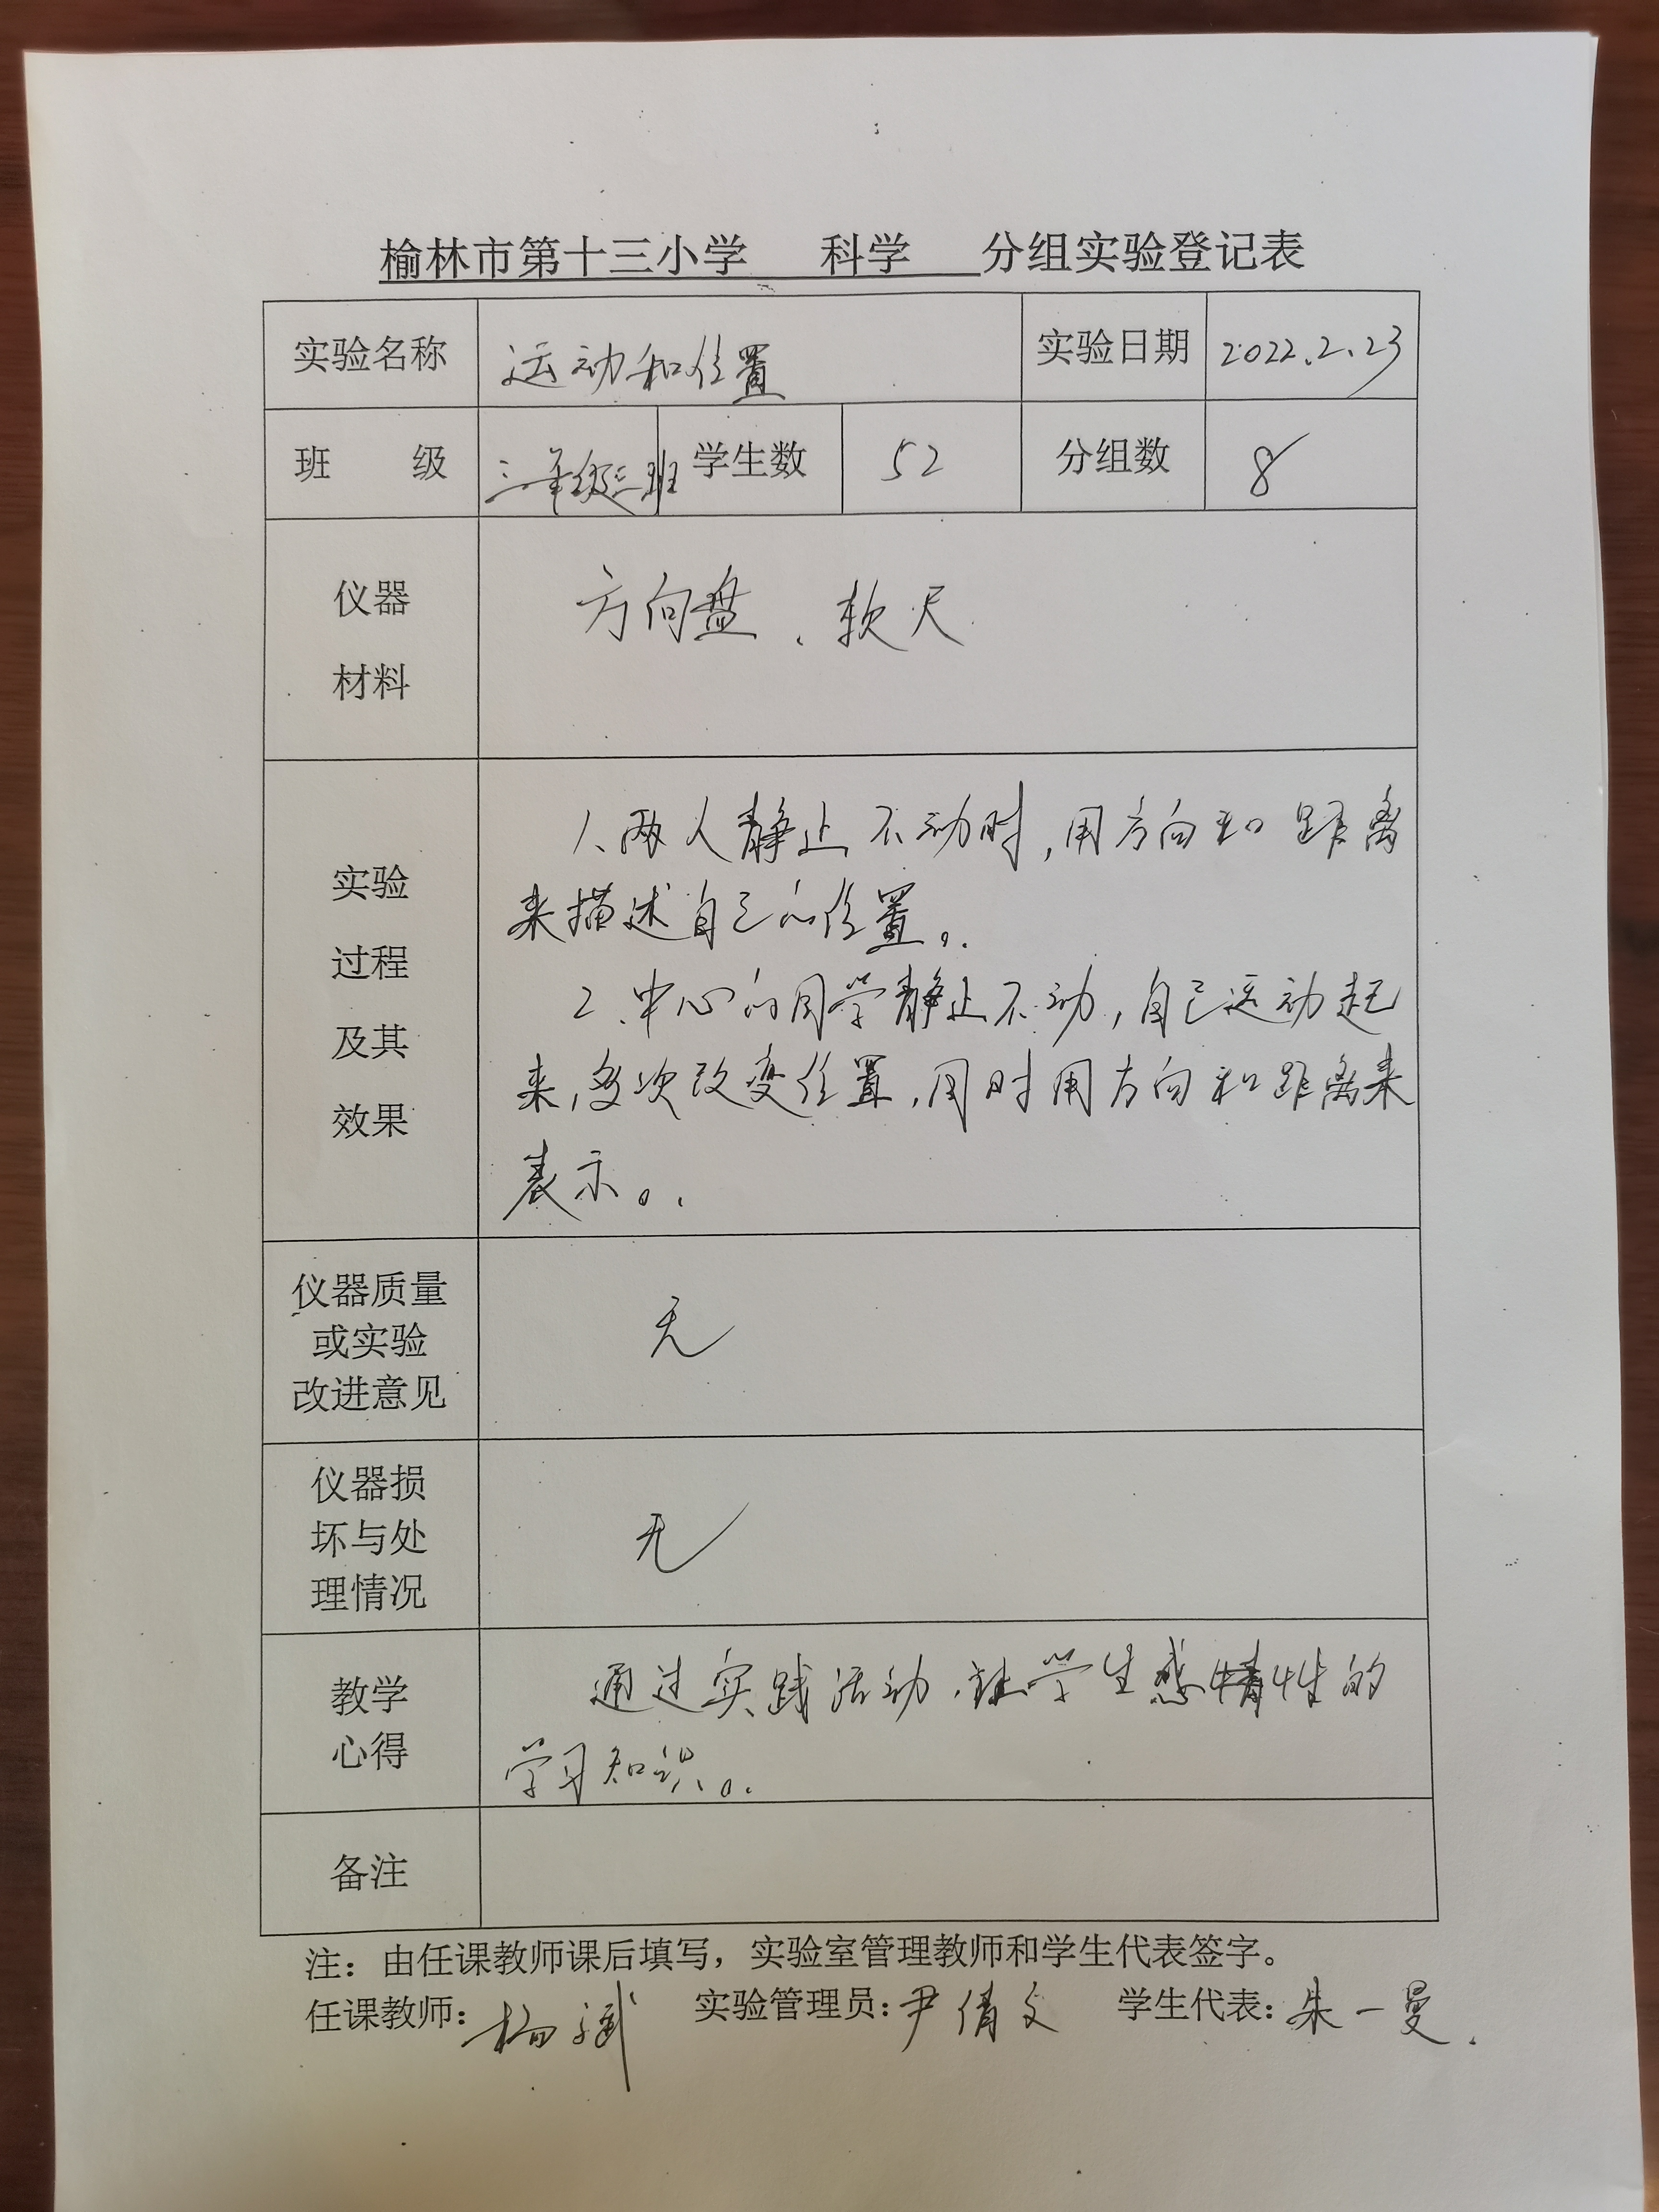 榆林市第十三小学 科学 分组实验登记表
实验名称 运动和位置 实验日期 2022.2.23
班 级 三年级三班 学生数 52 分组数 8
仪器
材料
方向盘、软尺
实验
过程
及其
效果
1、两人静止不动时，用方向和距离
来描述自己的位置。
2、中心的同学静止不动，自己运动起
来，多次改变位置，同时用方向和距离来
表示。
仪器质量
或实验
改进意见
无
仪器损
坏与处
理情况
无
教学
心得
通过实践活动，让学生感情性的
学习知识。
备注
注：由任课教师课后填写，实验室管理教师和学生代表签字。
任课教师：杨斌 实验管理员：尹倩文 学生代表：朱一曼